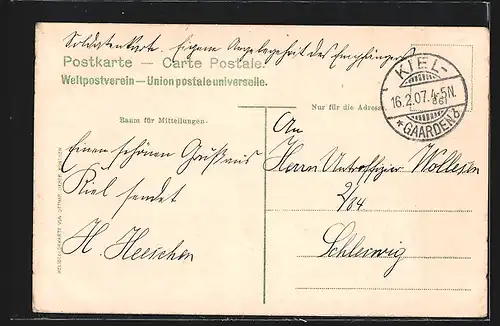 Soldatenkarte. Eigene Angelegenheit des Empfängers
Postkarte — Carte Postale.
Weltpostverein — Union postale universelle.
KIEL-
16.2.07. 4-5N.
*GAARDEN*
Nur für die Adresse.
Raum für Mitteilungen.
An
Herrn Unteroffizier Wollesen
9/84
Schleswig
Einen schönen Gruß aus
Kiel sendet
H. Heeschen